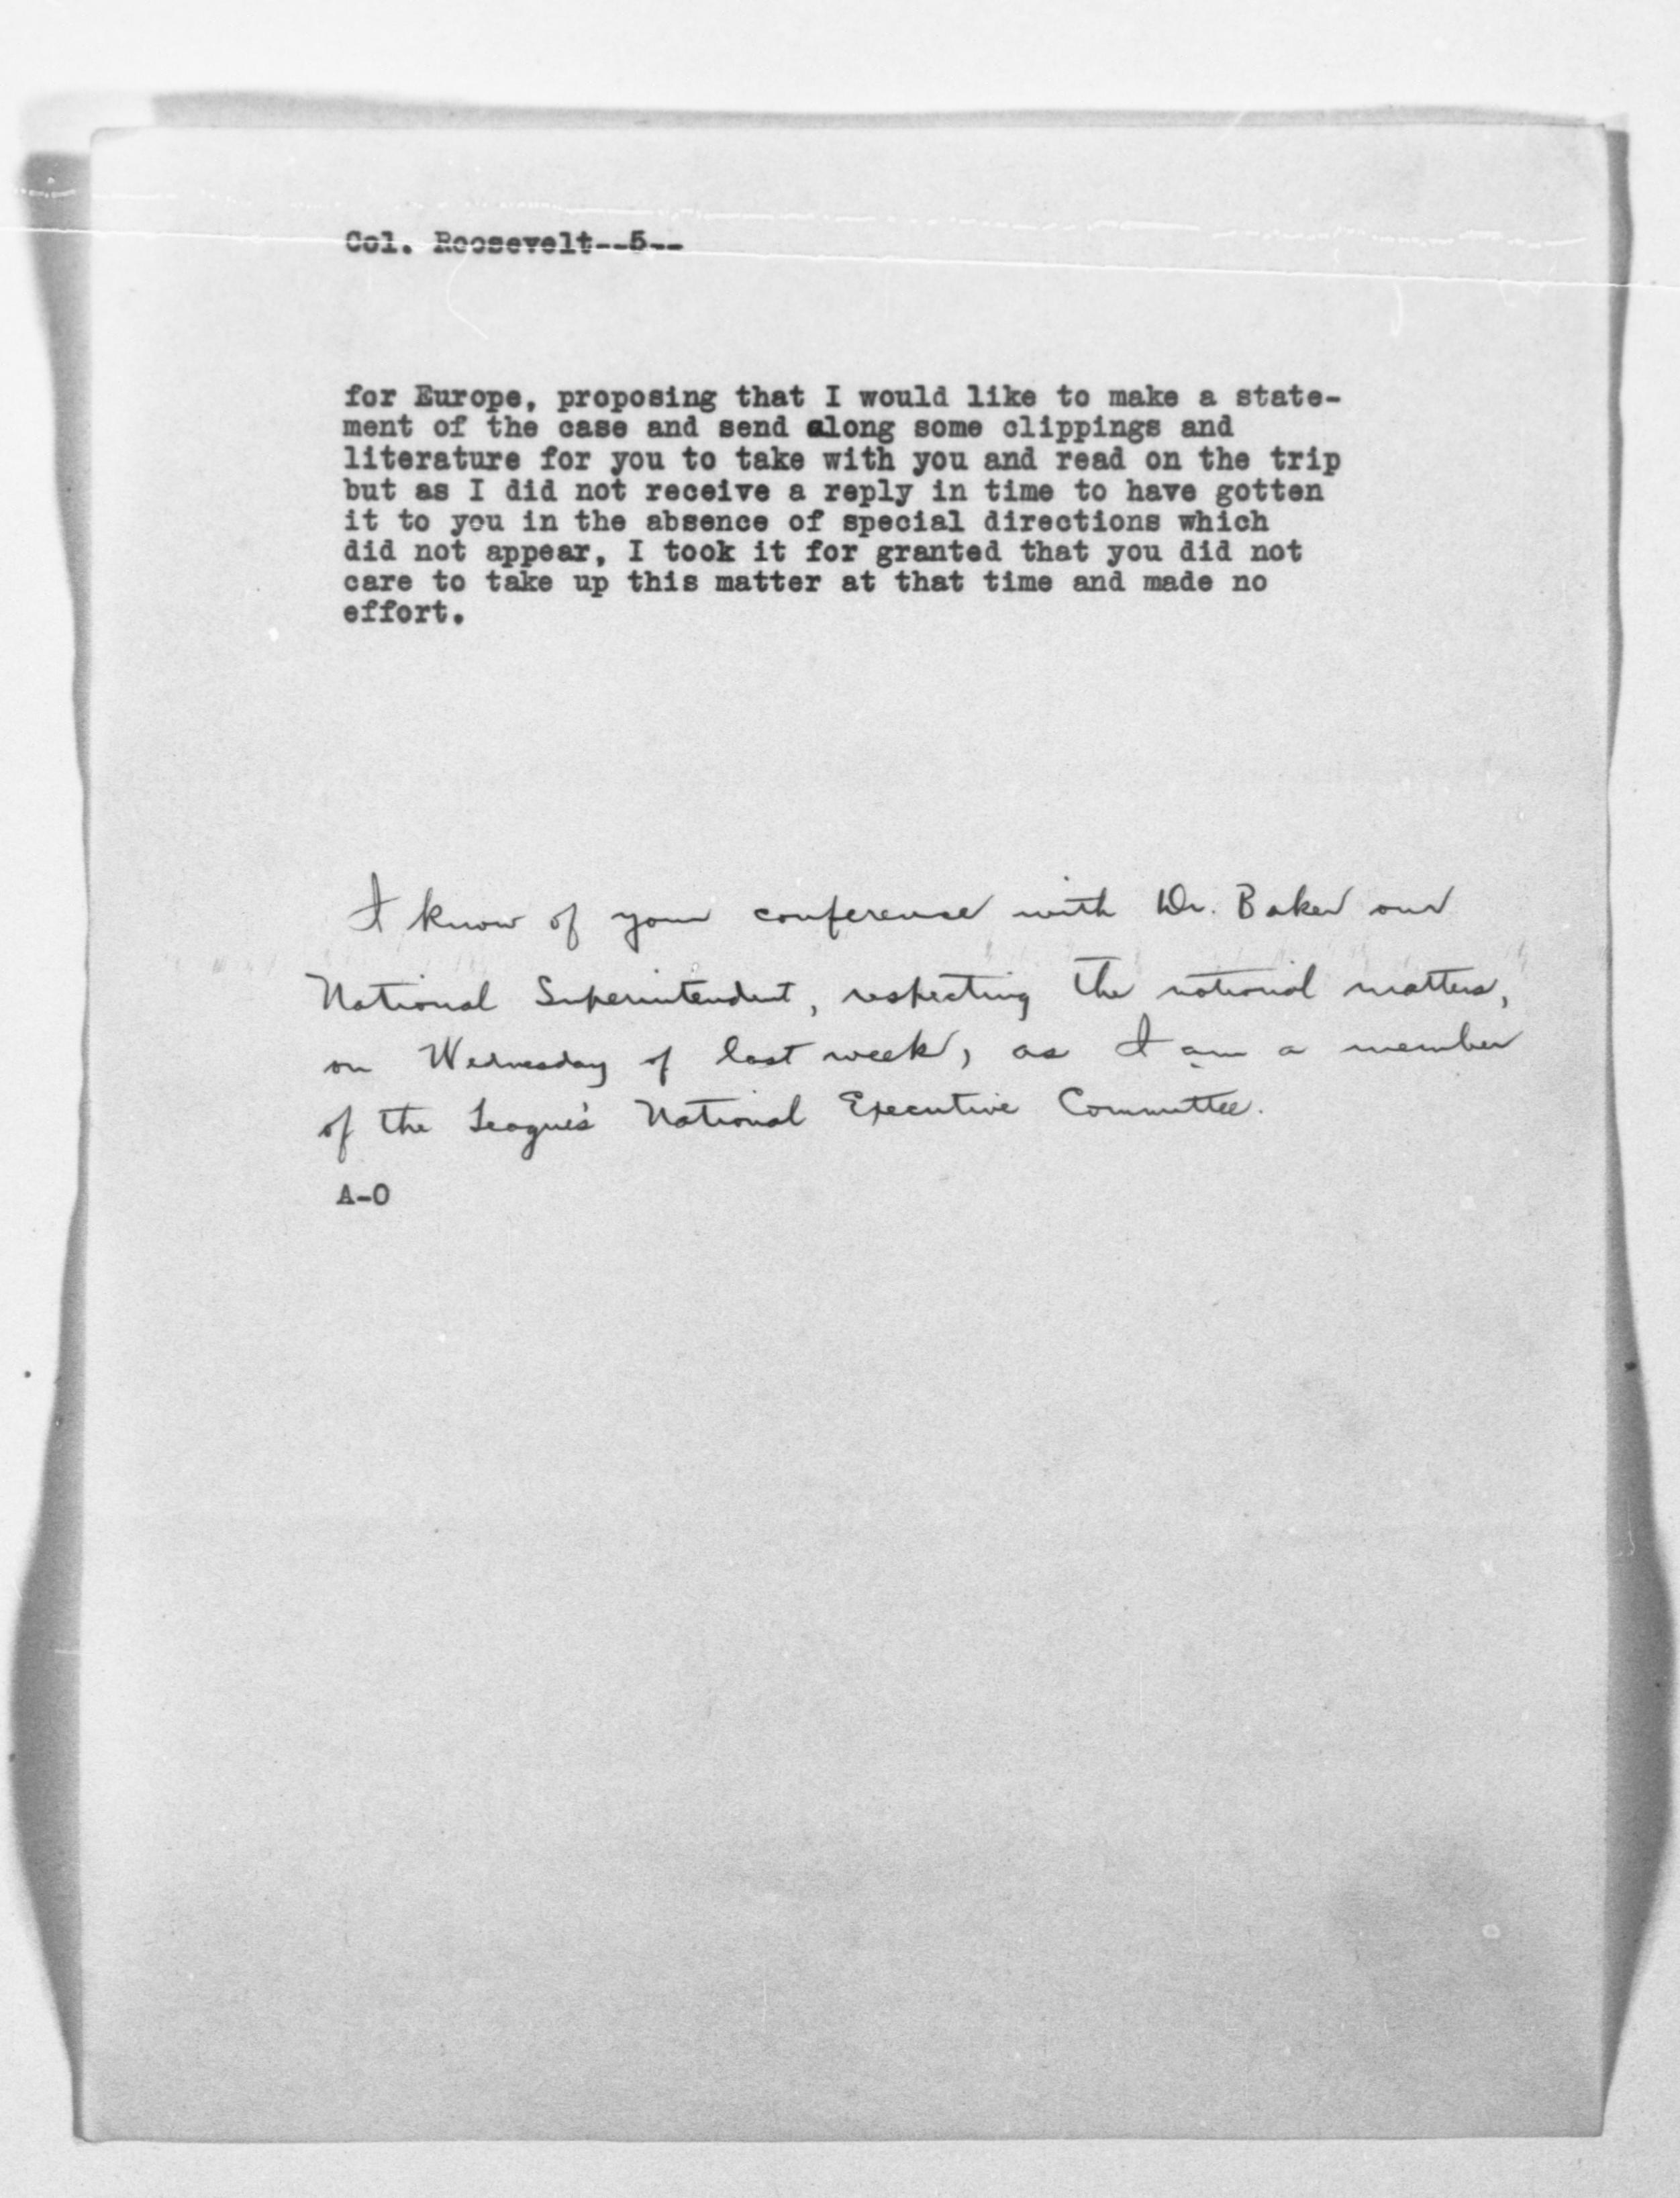 Col. Roosevelt--5--
for Europe, proposing that I would like to make a state-
ment of the case and send along some clippings and
literature for you to take with you and read on the trip
but as I did not receive a reply in time to have gotten
it to you in the absence of special directions which
did not appear, I took it for granted that you did not
care to take up this matter at that time and made no
effort.
I know of your conference with Dr. Baker our
National Superintendent, respecting the national matters,
on Wednesday of last week, as I am a member
of the League's National Executive Committee.
A-O